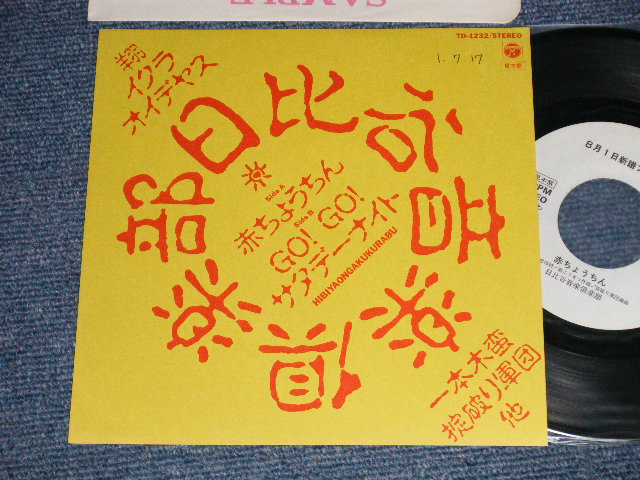 SAMPLE
TD-1232/STEREO
見本盤
1. 7. 17
翔
イクラ
オイデヤス
日比谷音楽倶楽部
Side A
赤ちょうちん
Side B
GO! GO!
サタデーナイト
HIBIYAONGAKUKURABU
一本木蛮
掟破り軍団
他
8月1日新譜
見本盤
赤ちょうちん
日比谷音楽倶楽部